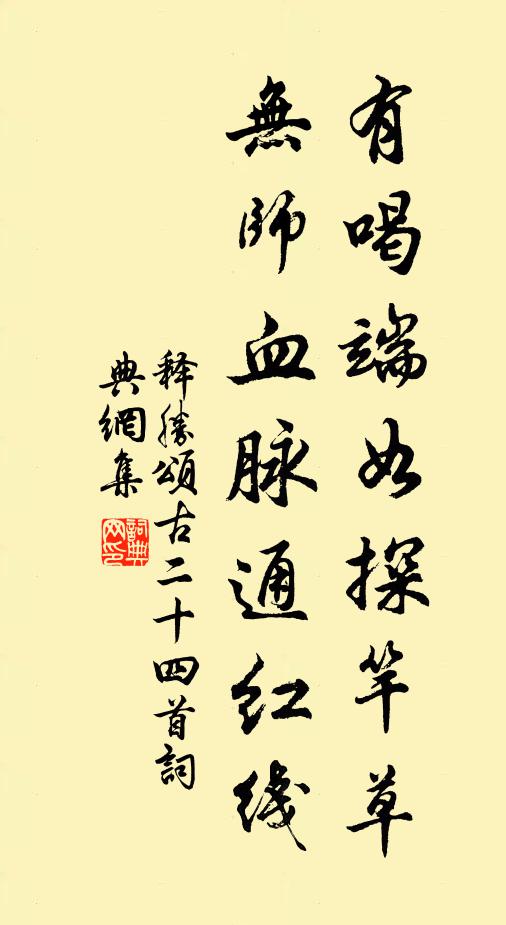 有喝端如探竿草
無師血脉通紅綫
释勝頌古二十四首詞
典網集
詞典网印